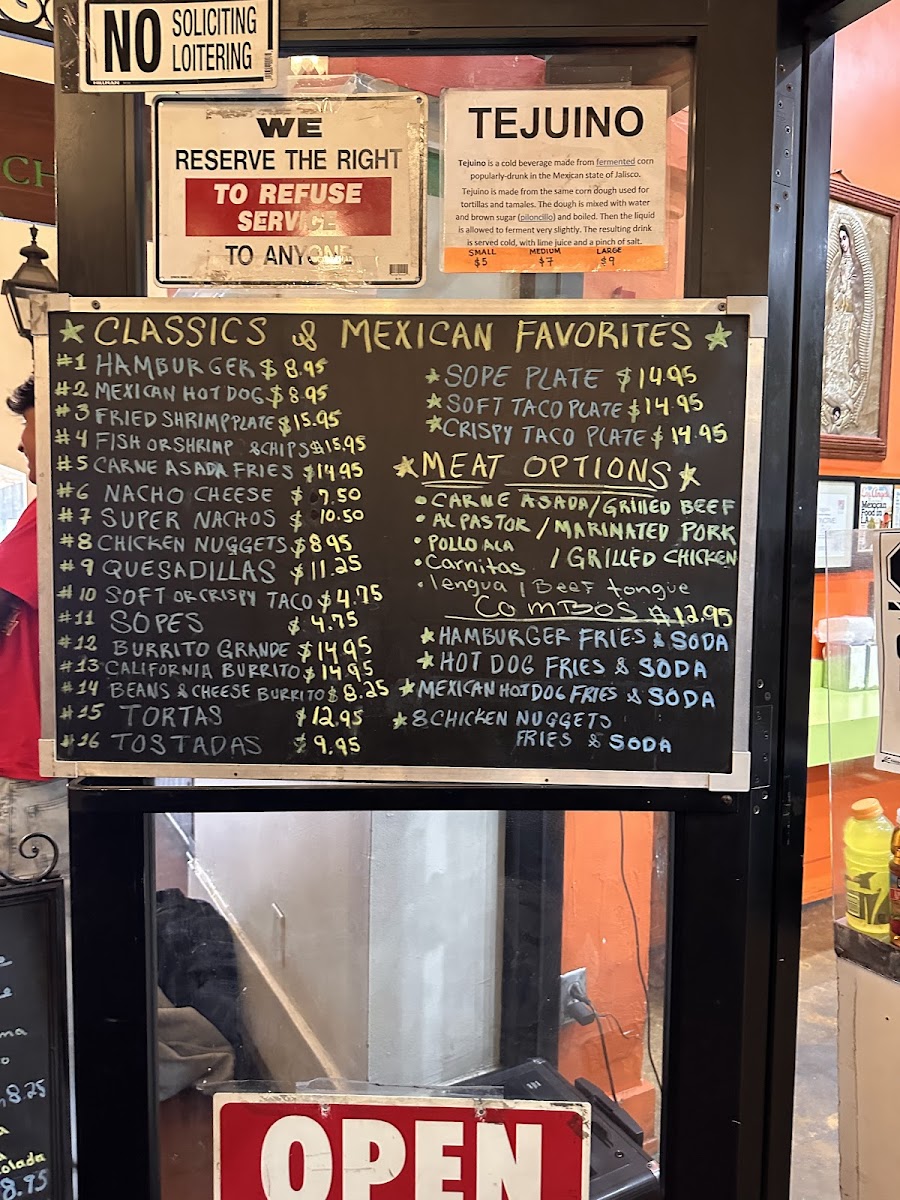 NO SOLICITING
LOITERING
HILLMAN
WE
RESERVE THE RIGHT
TO REFUSE
SERVICE
TO ANYONE
TEJUINO
Tejuino is a cold beverage made from fermented corn
popularly-drunk in the Mexican state of Jalisco.
Tejuino is made from the same corn dough used for
tortillas and tamales. The dough is mixed with water
and brown sugar (piloncillo) and boiled. Then the liquid
is allowed to ferment very slightly. The resulting drink
is served cold, with lime juice and a pinch of salt.
SMALL MEDIUM LARGE
$5 $7 $9
CLASSICS & MEXICAN FAVORITES
#1 HAMBURGER $8.95
#2 MEXICAN HOT DOG $8.95
#3 FRIED SHRIMP PLATE $15.95
#4 FISH OR SHRIMP & CHIPS $15.95
#5 CARNE ASADA FRIES $14.95
#6 NACHO CHEESE $7.50
#7 SUPER NACHOS $10.50
#8 CHICKEN NUGGETS $8.95
#9 QUESADILLAS $11.25
#10 SOFT OR CRISPY TACO $4.75
#11 SOPES $4.75
#12 BURRITO GRANDE $14.95
#13 CALIFORNIA BURRITO $14.95
#14 BEANS & CHEESE BURRITO $8.25
#15 TORTAS $12.95
#16 TOSTADAS $9.95
SOPE PLATE $14.95
SOFT TACO PLATE $14.95
CRISPY TACO PLATE $14.95
MEAT OPTIONS
• CARNE ASADA/GRILLED BEEF
• AL PASTOR / MARINATED PORK
• POLLO ALA / GRILLED CHICKEN
• Carnitas
• lengua / Beef tongue
COMBOS $12.95
HAMBURGER FRIES & SODA
HOT DOG FRIES & SODA
MEXICAN HOT DOG FRIES & SODA
8 CHICKEN NUGGETS
FRIES & SODA
CH
Mexican
Food in
LA
8.25
olada
8.95
OPEN